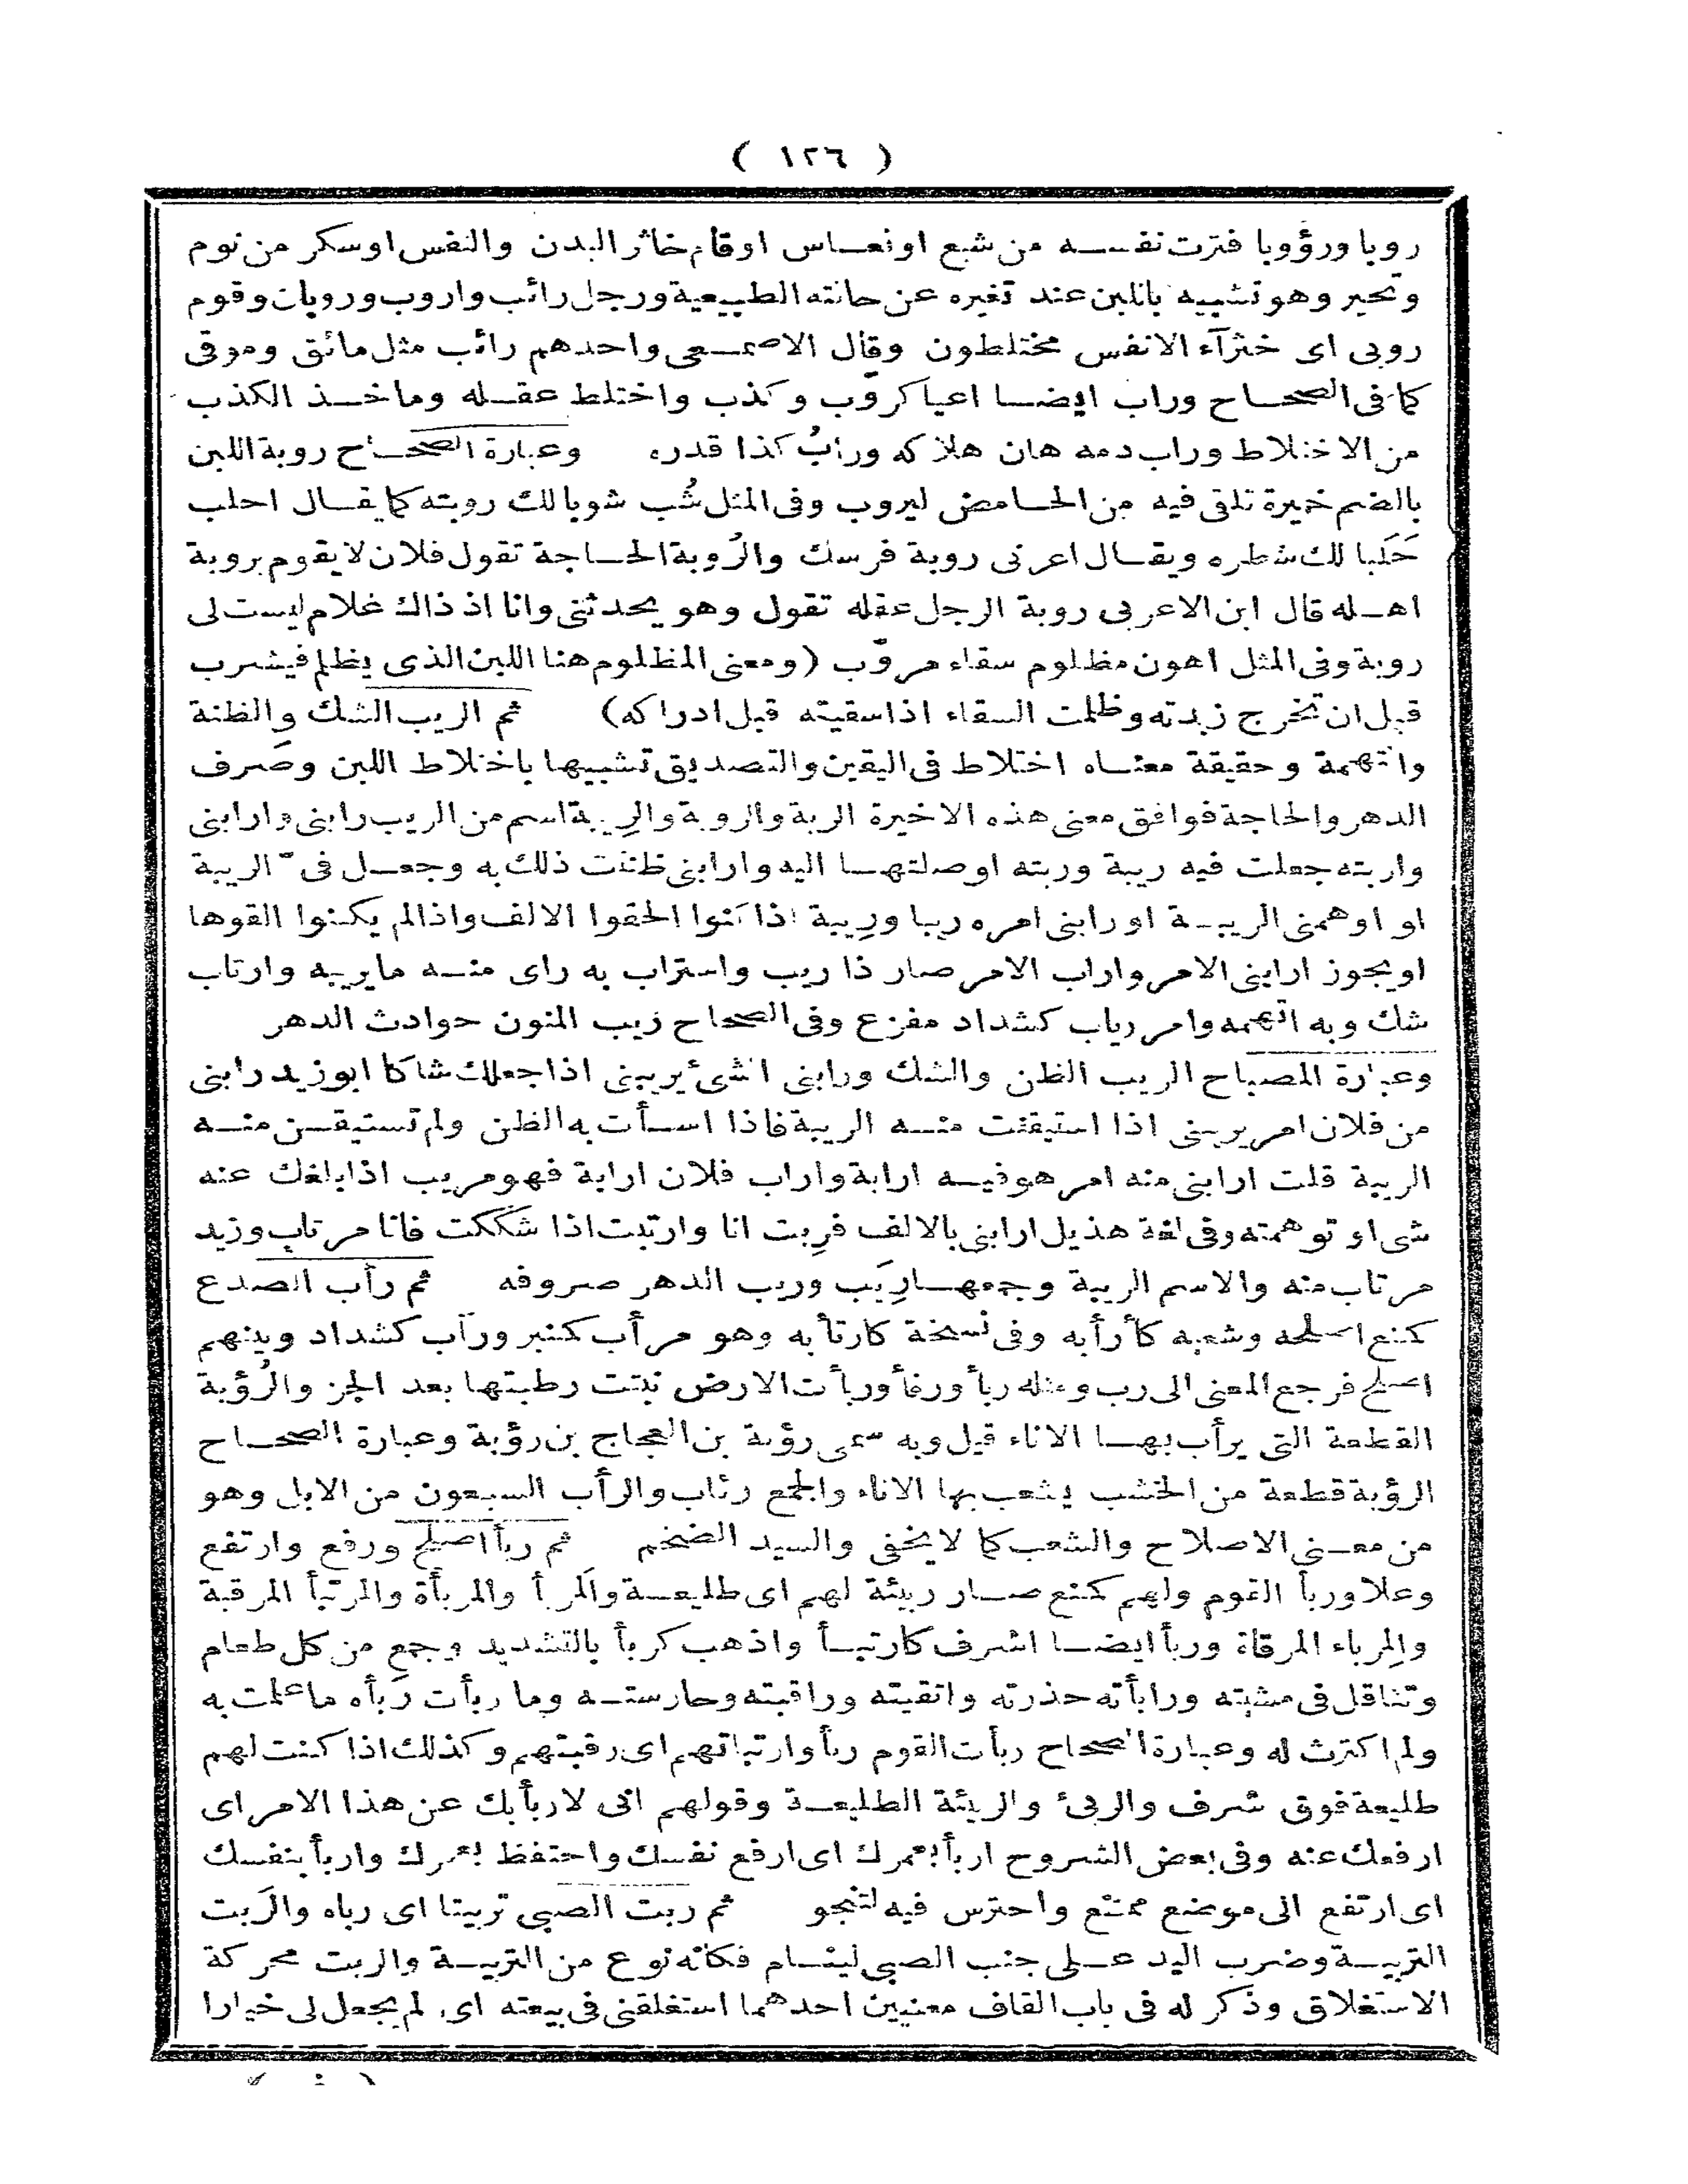 ( ١٢٦ )
روبا ورؤوبا فترت نفسه من شبع او نعاس او قام خاثر البدن والنفس او سكر من نوم
وتحير وهو تشبيه باللبن عند تغيره عن حالته الطبيعية ورجل رائب واروب وروبان وقوم
روبى اى خثرآء الانفس مختلطون وقال الاصمعى واحدهم رائب مثل مائق وموقى
كما فى الصحاح وراب ايضا اعيا كروّب وكذب واختلط عقله وماخذ الكذب
من الاختلاط وراب دمه هان هلاكه ورابُ كذا قدره وعبارة الصحاح روبة اللبن
بالضم خميرة تلقى فيه من الحامض ليروب وفى المثل شُب شوبا لك روبته كما يقال احلب
حَلَبا لك شطره ويقال اعرنى روبة فرسك والرُوبة الحاجة تقول فلان لا يقوم بروبة
اهله قال ابن الاعربى روبة الرجل عقله تقول وهو يحدثنى وانا اذ ذاك غلام ليست لى
روبة وفى المثل اهون مظلوم سقاء مروّب (ومعنى المظلوم هنا اللبن الذى يظلم فيشرب
قبل ان تخرج زبدته وظلمت السقاء اذا سقيته قبل ادراكه) ثم الريب الشك والظنة
والتهمة وحقيقة معناه اختلاط فى اليقين والتصديق تشبيها باختلاط اللبن وصَرف
الدهر والحاجة فوافق معنى هذه الاخيرة الربة والروبة والرِيبة اسم من الريب رابنى وارابنى
واربته جعلت فيه ريبة وربته اوصلتها اليه وارابنى ظننت ذلك به وجعل فىّ الريبة
او اوهمنى الريبة او رابنى امره ريبا ورِيبة اذا كنوا الحقوا الالف واذا لم يكنوا القوها
او يجوز ارابنى الامر واراب الامر صار ذا ريب واستراب به راى منه ما يريبه وارتاب
شك وبه اتهمه وامر رياب كشداد مفزع وفى الصحاح ريب المنون حوادث الدهر
وعبارة المصباح الريب الظن والشك ورابنى الشئ يريبنى اذا جعلك شاكا ابو زيد رابنى
من فلان امر يريبنى اذا استيقنت منه الريبة فاذا اسأت به الظن ولم تستيقن منه
الريبة قلت ارابنى منه امر هو فيه ارابة واراب فلان ارابة فهو مريب اذا بلغك عنه
شى او توهمته وفى لغة هذيل ارابنى بالالف فرِبت انا وارتبت اذا شككت فانا مرتاب وزيد
مرتاب منه والاسم الريبة وجمعها رِيَب وريب الدهر صروفه ثم رأب الصدع
كمنع اصلحه وشعبه كأرأبه وفى نسخة كارتأبه وهو مرأب كمنبر ورآب كشداد وبينهم
اصلح فرجع المعنى الى رب ومثله ربأ ورفأ وربأت الارض نبتت رطبتها بعد الجز والرُؤبة
القطعة التى يرأب بها الاناء قيل وبه سمى رؤبة بن العجاج بن رؤبة وعبارة الصحاح
الرؤبة قطعة من الخشب يشعب بها الاناء والجمع رئاب والرأب السبعون من الابل وهو
من معنى الاصلاح والشعب كما لا يخفى والسيد الضخم ثم ربأ اصلح ورفع وارتفع
وعلا وربأ القوم ولهم كمنع صار ربيئة لهم اى طليعة والمَربأ والمربأة والمرتبأ المرقبة
والمِرباء المرقاة وربأ ايضا اشرف كارتبأ واذهب كربأ بالتشديد وجمع من كل طعام
وتثاقل فى مشيته ورابأته حذرته واتقيته وراقبته وحارسته وما ربأت رَبأه ما علمت به
ولم اكترث له وعبارة الصحاح ربأت القوم ربأ وارتباتهم اى رقبتهم وكذلك اذا كنت لهم
طليعة فوق شرف والربىء والربيئة الطليعة وقولهم انى لاربأ بك عن هذا الامر اى
ارفعك عنه وفى بعض الشروح اربأ بعمرك اى ارفع نفسك واحتفظ بعمرك واربأ بنفسك
اى ارتفع الى موضع ممتنع واحترس فيه لتنجو ثم ربت الصبى تربيتا اى رباه والرَبت
التربية وضرب اليد على جنب الصبى لينام فكأنه نوع من التربية والربت محركة
الاستغلاق وذكر له فى باب القاف معنيين احدهما استغلقنى فى بيعته اى لم يجعل لى خيارا